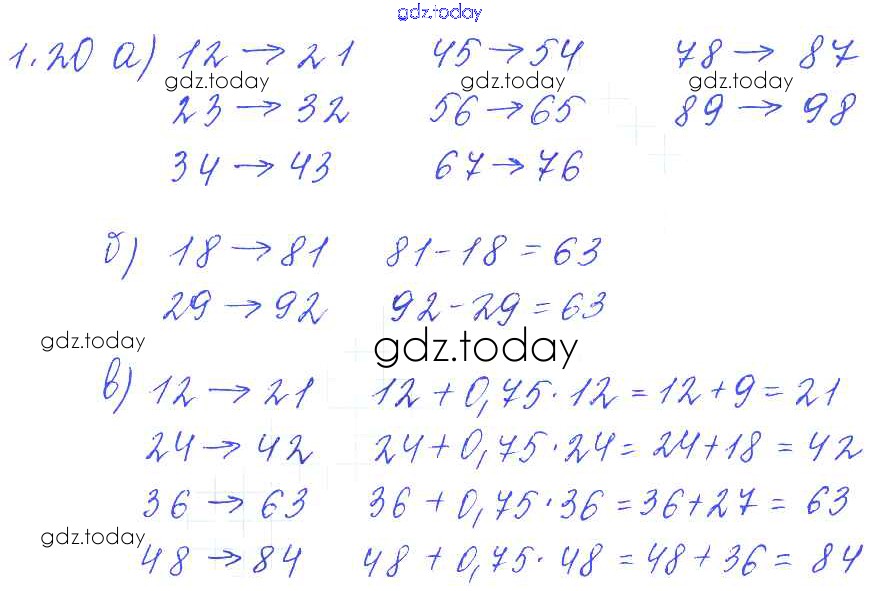 gdz.today
1.20 а) 12 → 21 45 → 54 78 → 87
gdz.today gdz.today gdz.today
23 → 32 56 → 65 89 → 98
34 → 43 67 → 76
б) 18 → 81 81 - 18 = 63
29 → 92 92 - 29 = 63
gdz.today gdz.today
в) 12 → 21 12 + 0,75 · 12 = 12 + 9 = 21
24 → 42 24 + 0,75 · 24 = 24 + 18 = 42
36 → 63 36 + 0,75 · 36 = 36 + 27 = 63
gdz.today
48 → 84 48 + 0,75 · 48 = 48 + 36 = 84